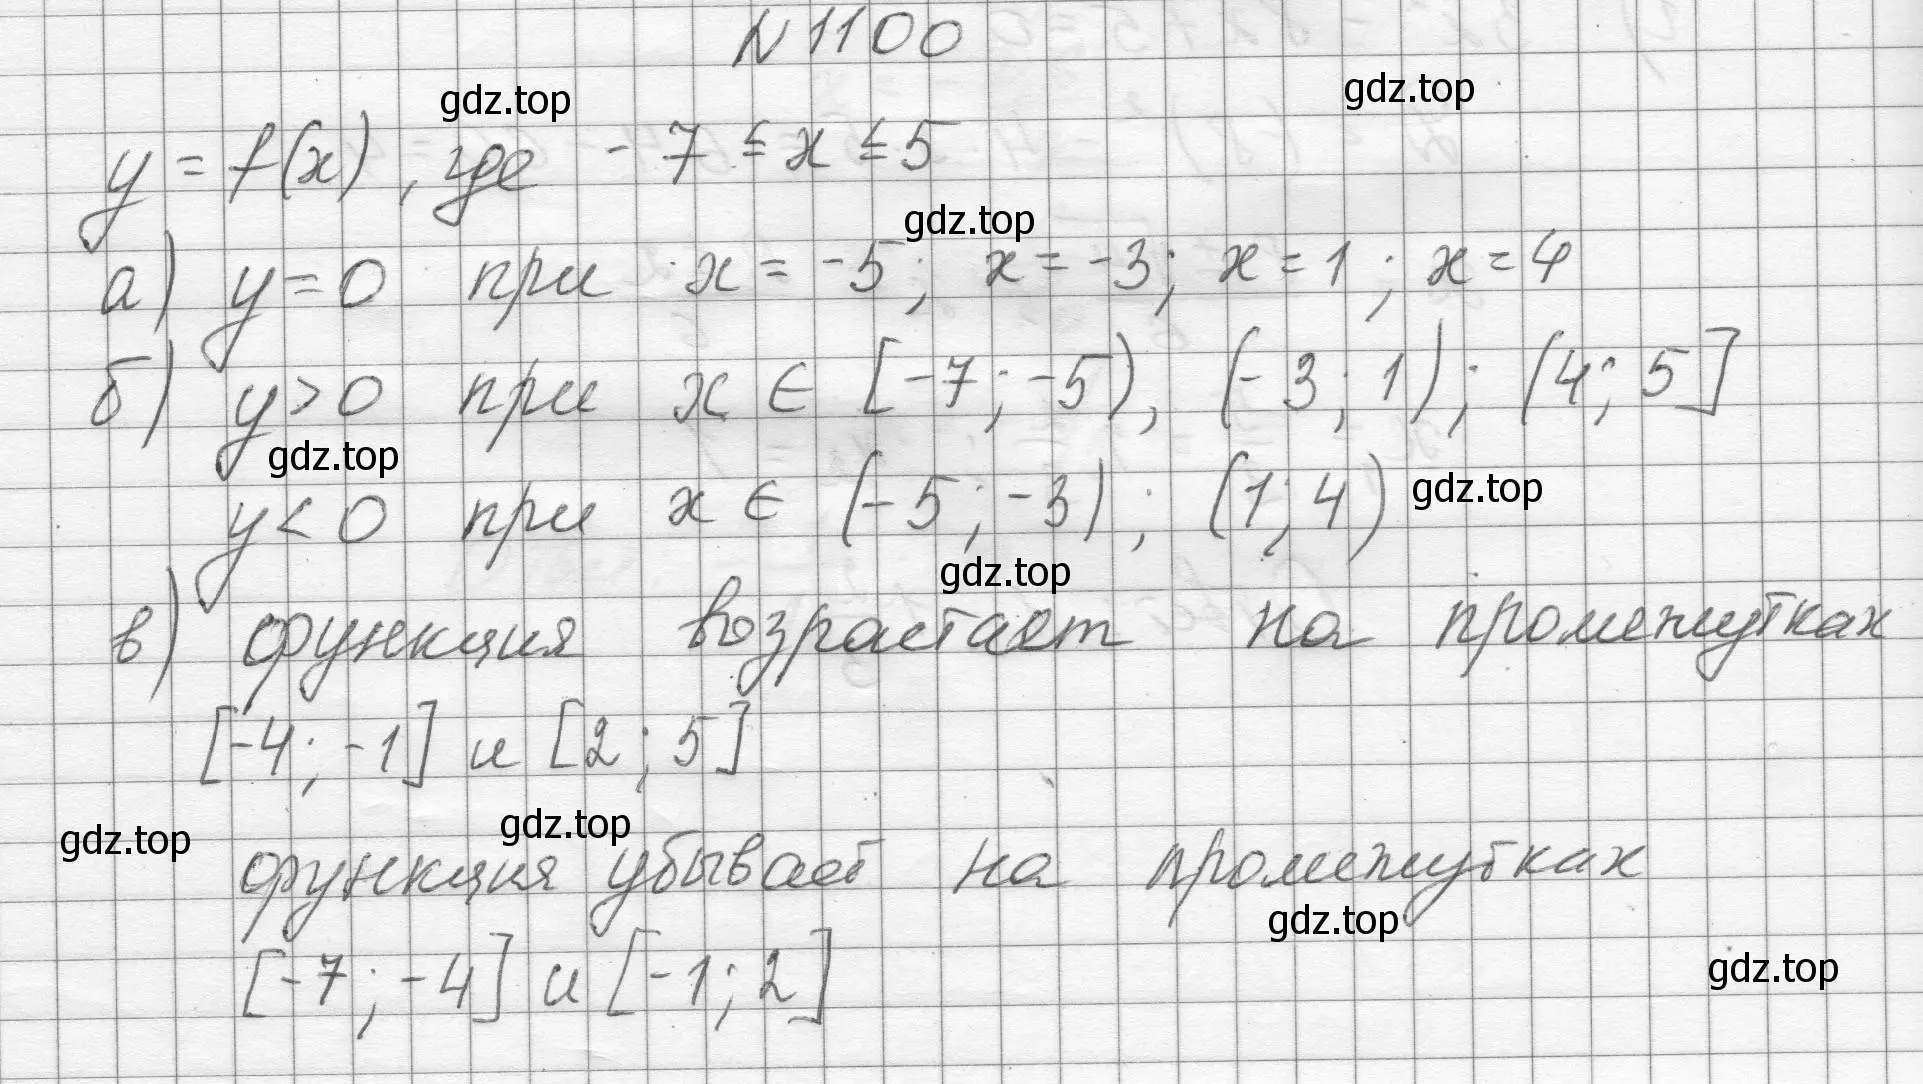 N 1100
gdz.top
gdz.top
y = f(x), где -7 ≤ x ≤ 5
gdz.top
а) y = 0 при x = -5; x = -3; x = 1; x = 4
б) y > 0 при x ∈ [-7; -5), (-3; 1); (4; 5]
gdz.top
y < 0 при x ∈ (-5; -3); (1; 4)
gdz.top
gdz.top
в) функция возрастает на промежутках
[-4; -1] и [2; 5]
gdz.top
gdz.top
функция убывает на промежутках
gdz.top
[-7; -4] и [-1; 2]
gdz.top